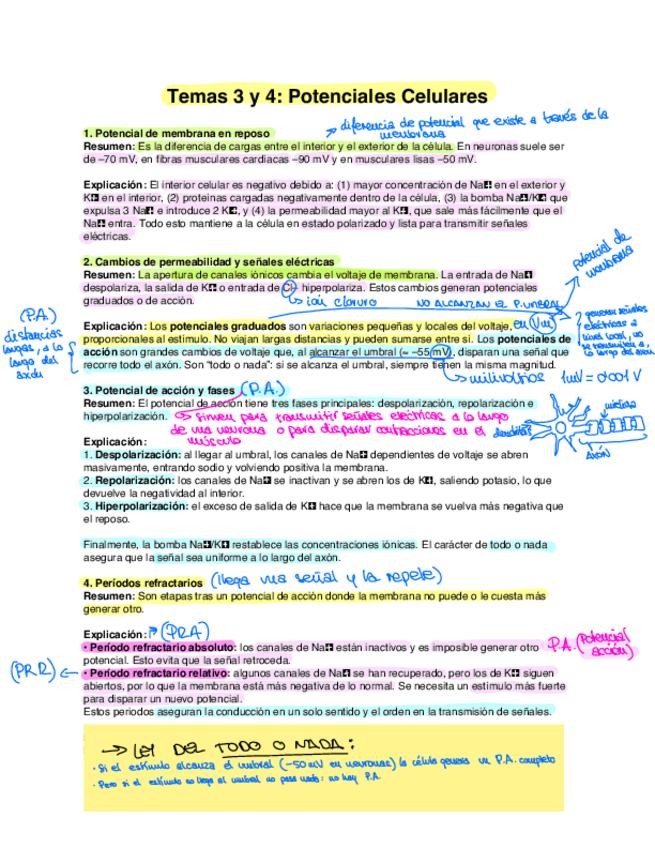 Temas 3 y 4: Potenciales Celulares
→ diferencia de potencial que existe a través de la
membrana
1. Potencial de membrana en reposo
Resumen: Es la diferencia de cargas entre el interior y el exterior de la célula. En neuronas suele ser
de –70 mV, en fibras musculares cardiacas –90 mV y en musculares lisas –50 mV.
Explicación: El interior celular es negativo debido a: (1) mayor concentración de Na■ en el exterior y
K■ en el interior, (2) proteínas cargadas negativamente dentro de la célula, (3) la bomba Na■/K■ que
expulsa 3 Na■ e introduce 2 K■, y (4) la permeabilidad mayor al K■, que sale más fácilmente que el
Na■ entra. Todo esto mantiene a la célula en estado polarizado y lista para transmitir señales
eléctricas.
potencial de
membrana
2. Cambios de permeabilidad y señales eléctricas
Resumen: La apertura de canales iónicos cambia el voltaje de membrana. La entrada de Na■
despolariza, la salida de K■ o entrada de Cl– hiperpolariza. Estos cambios generan potenciales
graduados o de acción.
→ ión cloruro
NO ALCANZAN EL P. UMBRAL
(P.A.)
distancias
largas, a lo
largo del
axón
Explicación: Los potenciales graduados son variaciones pequeñas y locales del voltaje, en (Vm)
proporcionales al estímulo. No viajan largas distancias y pueden sumarse entre sí. Los potenciales de
acción son grandes cambios de voltaje que, al alcanzar el umbral (≈ –55 mV), disparan una señal que
recorre todo el axón. Son “todo o nada”: si se alcanza el umbral, siempre tienen la misma magnitud.
generan señales
eléctricas a
nivel local, no
se transmiten a
lo largo del axón
→ milivoltios 1mV = 0'001 V
3. Potencial de acción y fases (P.A.)
Resumen: El potencial de acción tiene tres fases principales: despolarización, repolarización e
hiperpolarización. → sirven para transmitir señales eléctricas a lo largo
de una neurona o para disparar contracciones en el
músculo
dendritas
mielina
AXÓN
Explicación:
1. Despolarización: al llegar al umbral, los canales de Na■ dependientes de voltaje se abren
masivamente, entrando sodio y volviendo positiva la membrana.
2. Repolarización: los canales de Na■ se inactivan y se abren los de K■, saliendo potasio, lo que
devuelve la negatividad al interior.
3. Hiperpolarización: el exceso de salida de K■ hace que la membrana se vuelva más negativa que
el reposo.
Finalmente, la bomba Na■/K■ restablece las concentraciones iónicas. El carácter de todo o nada
asegura que la señal sea uniforme a lo largo del axón.
4. Períodos refractarios (llega una señal y la repete)
Resumen: Son etapas tras un potencial de acción donde la membrana no puede o le cuesta más
generar otro.
Explicación: → (PRA)
• Período refractario absoluto: los canales de Na■ están inactivos y es imposible generar otro
potencial. Esto evita que la señal retroceda.
P.A. (Potencial
acción)
(PRR) ←
• Período refractario relativo: algunos canales de Na■ se han recuperado, pero los de K■ siguen
abiertos, por lo que la membrana está más negativa de lo normal. Se necesita un estímulo más fuerte
para disparar un nuevo potencial.
Estos periodos aseguran la conducción en un solo sentido y el orden en la transmisión de señales.
→ LEY DEL TODO O NADA:
· Si el estímulo alcanza el umbral (–50 mV en neuronas) la célula genera un P.A. completo
· Pero si el estímulo no llega al umbral no pasa nada: no hay P.A.